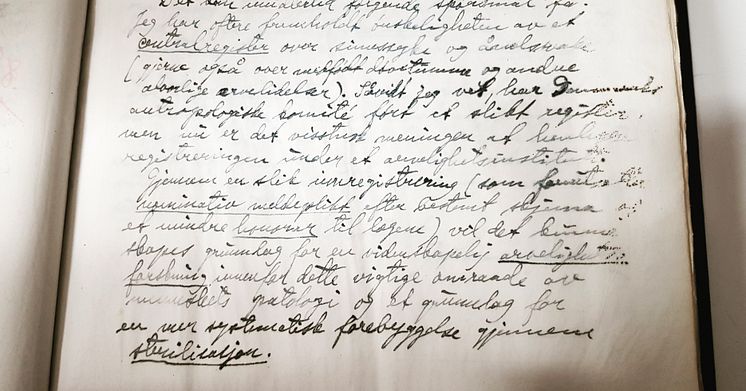 Det kan imidlertid følgende spørsmål få.
Jeg har oftere fremholdt ønskeligheten av et
centralregister over sinnssyke og åndssvake
(gjerne også over medfødt døvstumme og andre
alvorlige arvelidelser). Såvidt jeg vet, har Danmarks
antropologiske komité ført et slikt register,
men nu er det visstnok meningen at henlegge
registreringen under et arvelighetsinstitutt.
Gjennem en slik innregistrering (som
nominativ meldeplikt efter bestemt skjema og
et mindre honorar til lægen) vil det kunne
skapes grunnlag for en videnskapelig arvelighets
forskning innenfor dette vigtige område av
menneskets patologi og et grunnlag for
en mer systematisk forebyggelse gjennem
sterilisasjon.